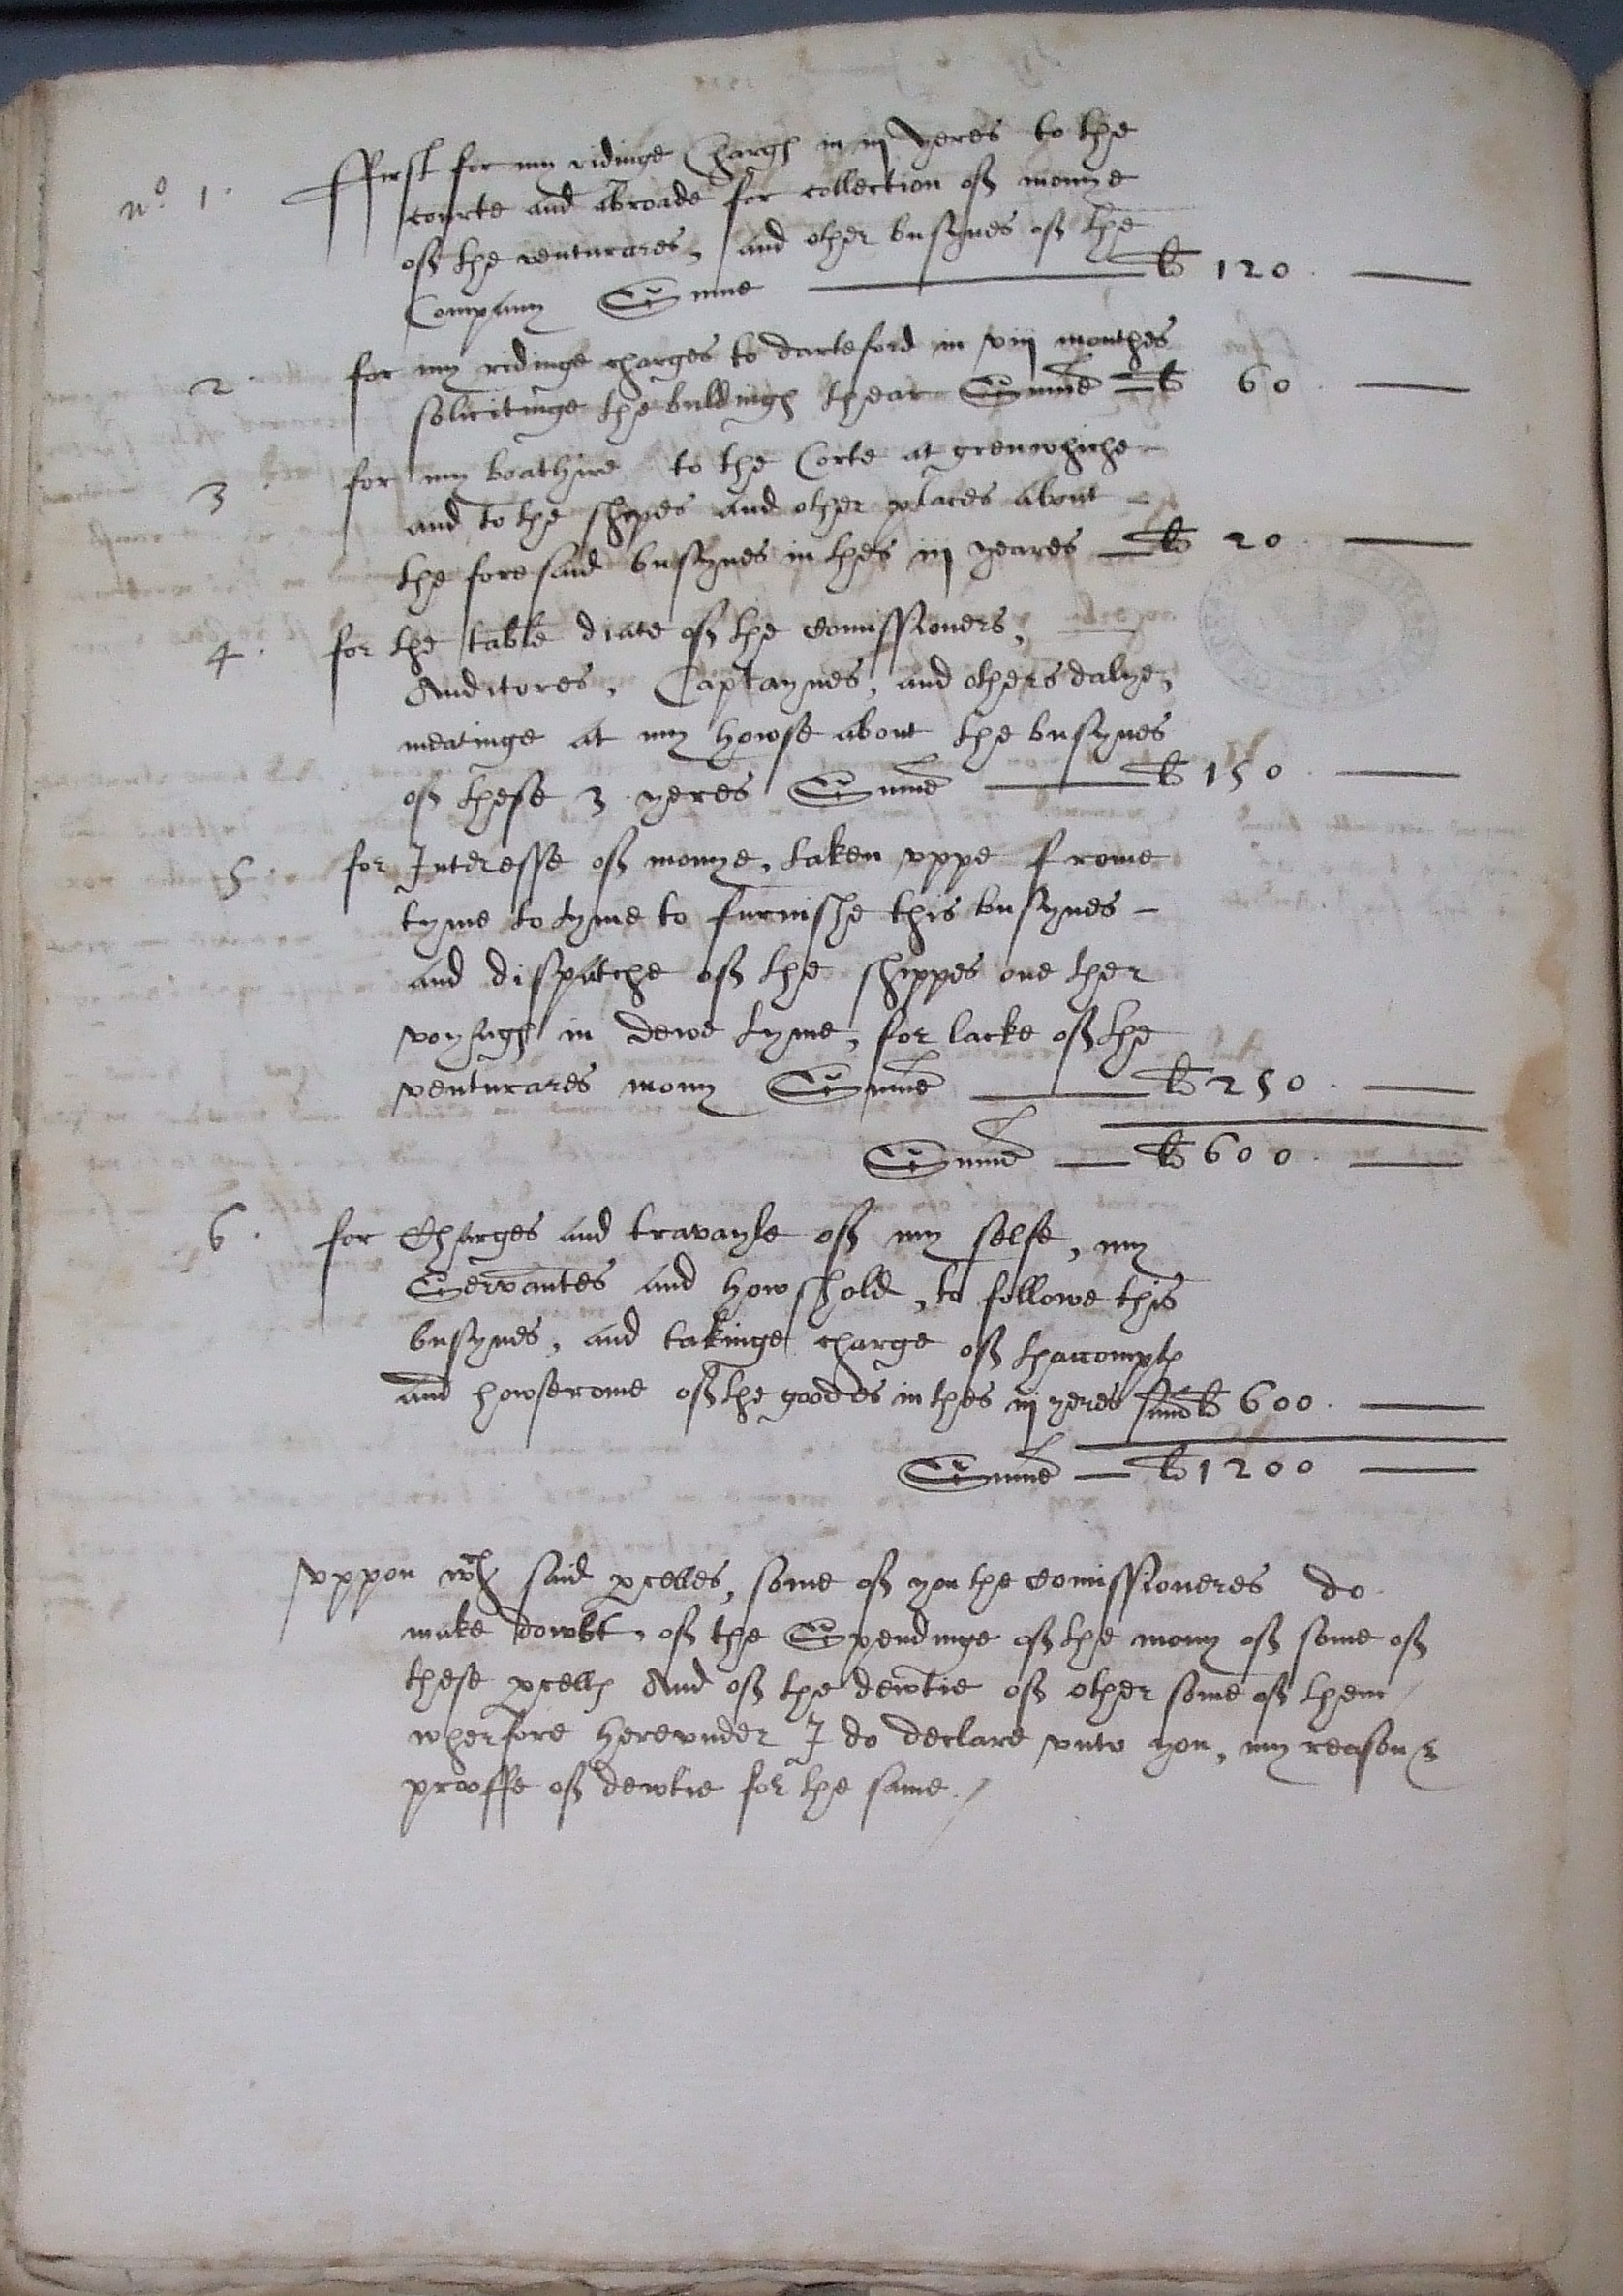 no 1. ffirst for my ridinge Charges in iij yeres to the
courte and abroade for collection of monye
of the venturares, and other busynes of the
Company Summe li 120.
2. for my ridinge charges to darteford in viij monthes
solicitinge the buldinges thear Summe li 60.
3. for my boathire to the Corte at grenwhiche
and to the shipes and other places about
the foresaid busynes in thes iij yeares li 20.
4. for the table diate of the comissioners,
Auditores, Captaynes, and others dalye,
meatinge at my howse about the busynes
of these 3 yeres Summe li 150.
5. for Interesse of monye, taken uppe frome
tyme to tyme to furnishe this busynes
and dispatche of the shippes one ther
voyages in dewe tyme, for lacke of the
venturares mony Summe li 250.
Summe li 600.
6. for Charges and travayle of my selfe, my
Servantes and howshold, to followe this
busynes, and takinge charge of thaccomptes
and howserome of the goodes in thes iij yeres summe li 600.
Summe li 1200
Vppon wch said pcelles, some of you the comissioneres do
make dowbt, of the Spendinge of the mony of some of
these pcelles And of the dewtie of other some of them /
wherfore herevnder I do declare vnto you, my reason &
prooffe of dewtie for the same. /